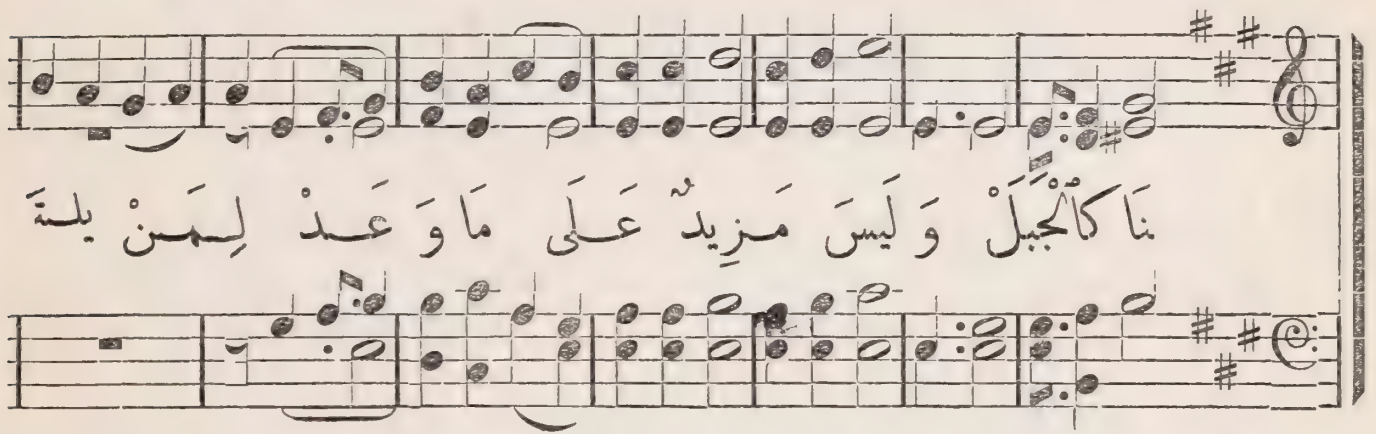 نَا كَٱلْجَبَلْ وَ لَيسَ مَزِيدٌ عَلَى مَا وَ عَدْ لِمَنْ يلتَ